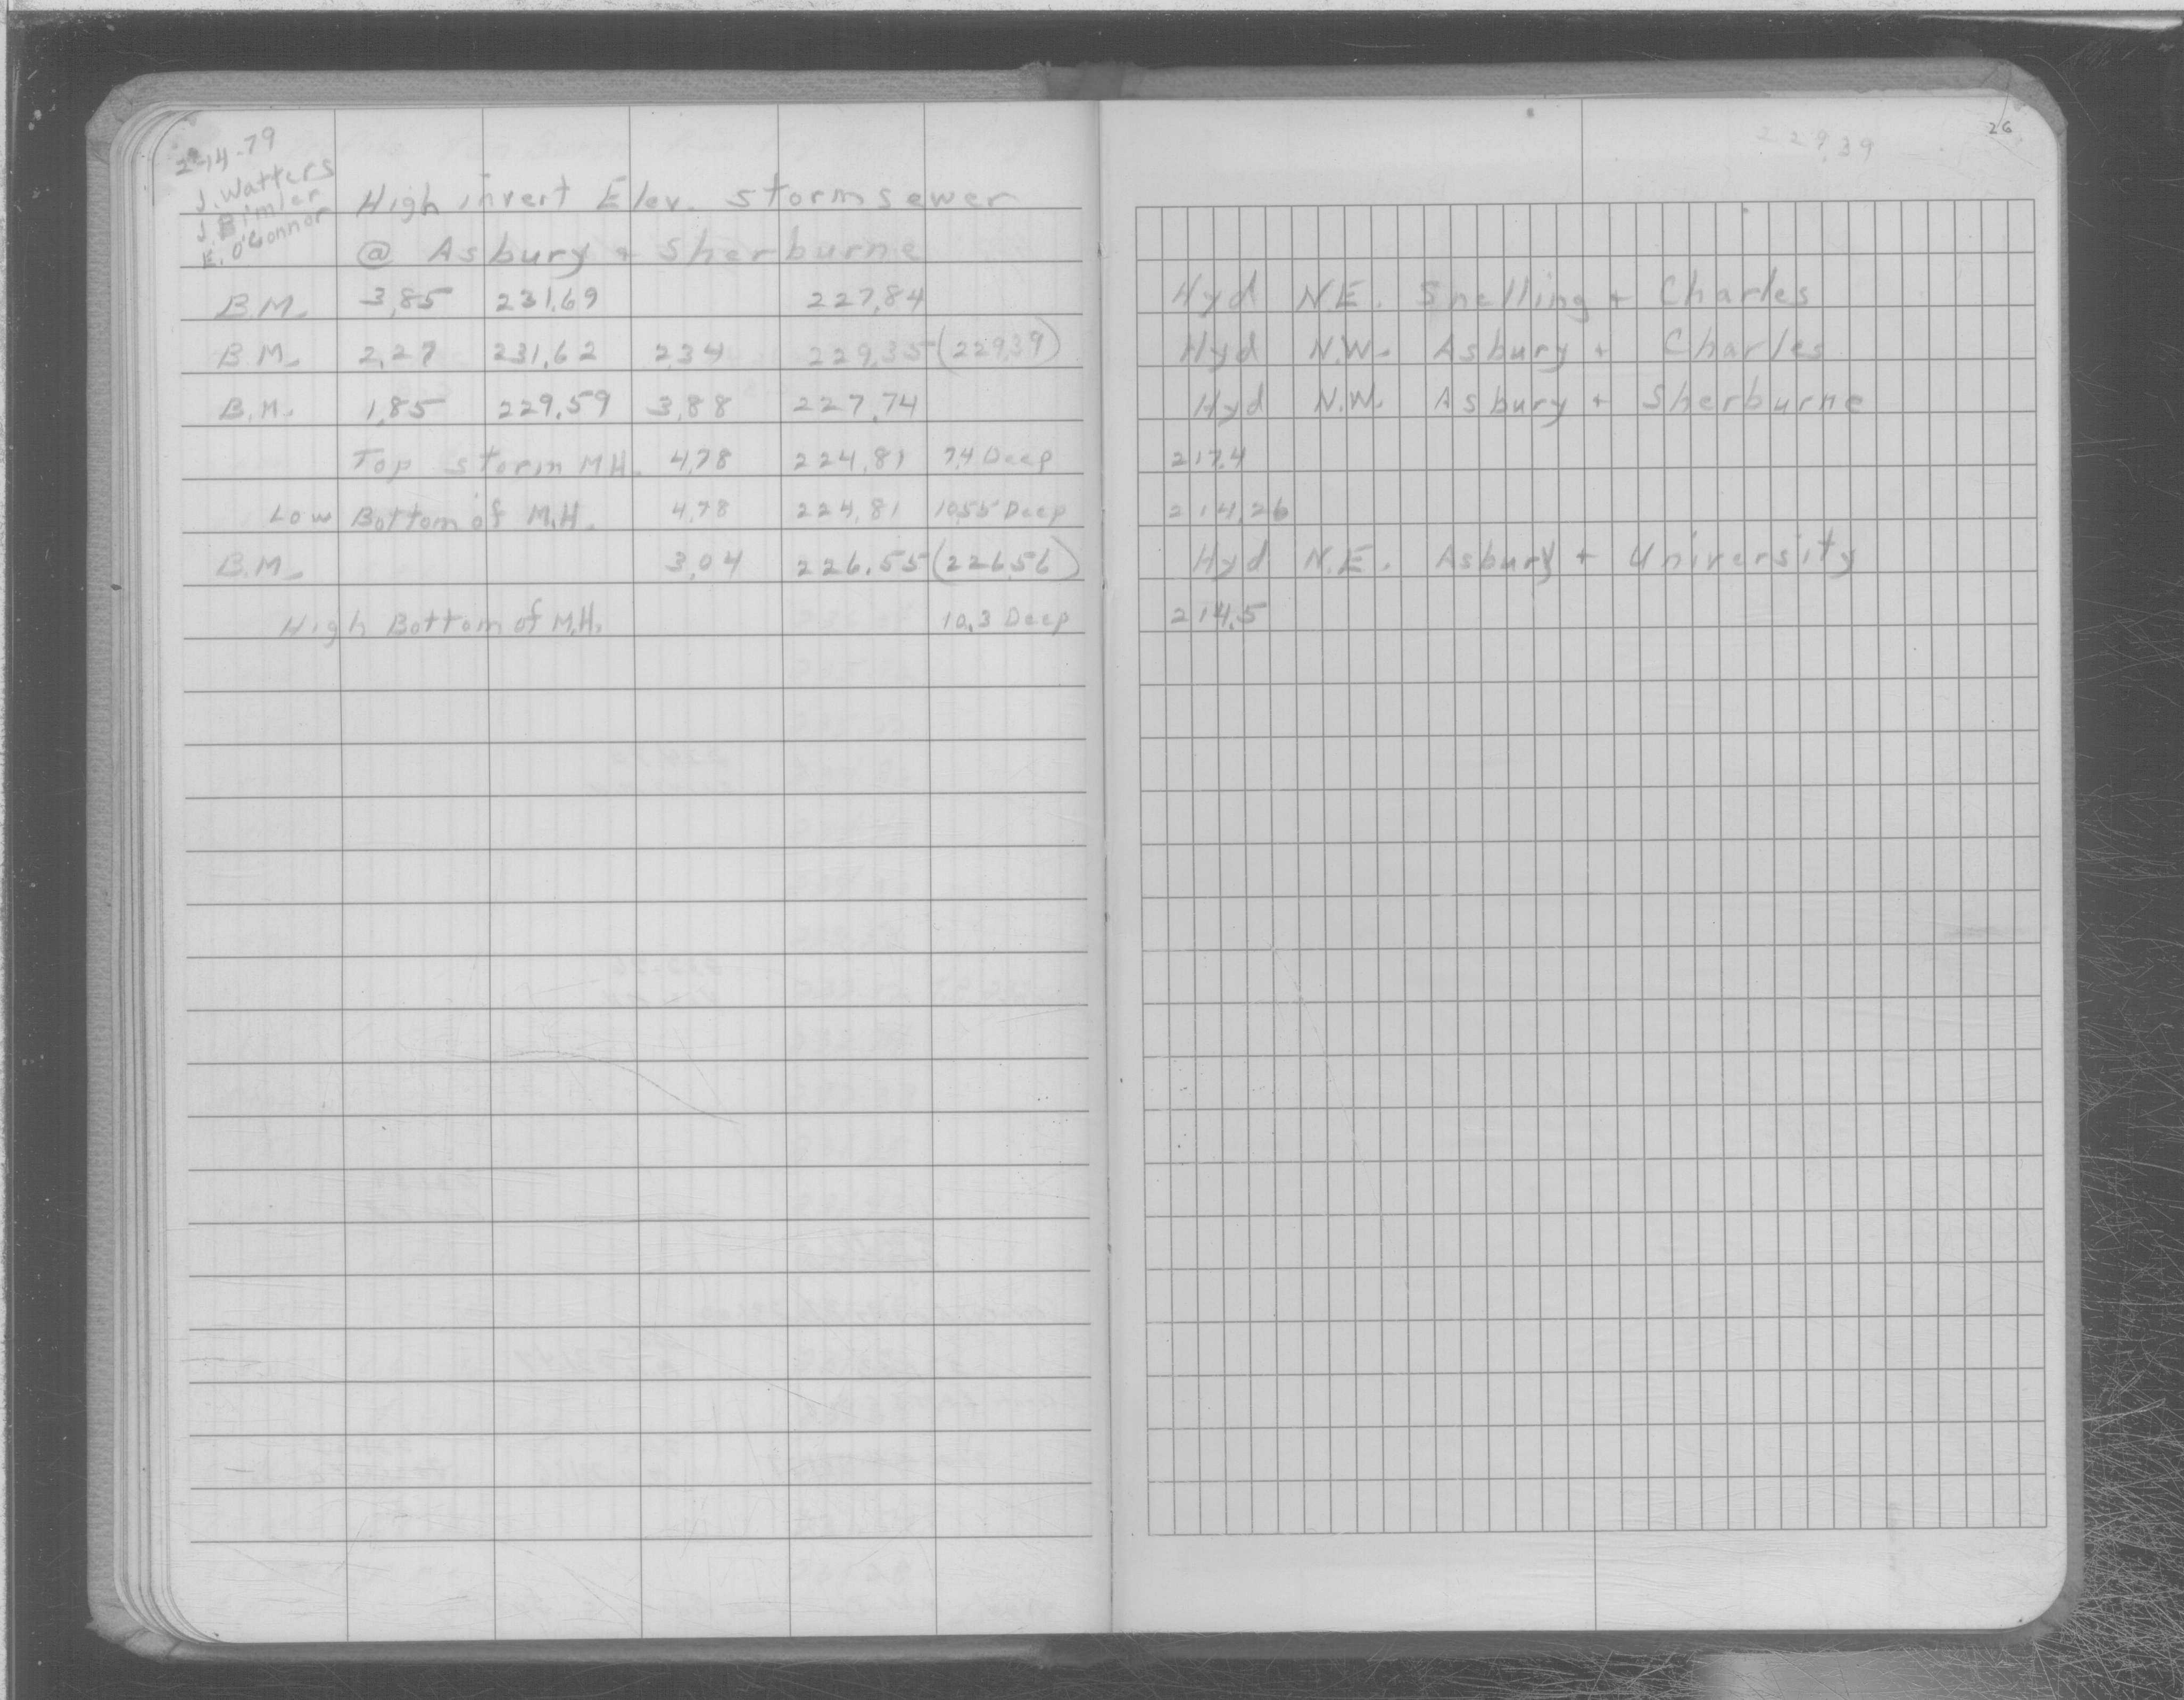 2-14-79
J. Watters
J. Bimler
E. O'Connor
High invert Elev. storm sewer
@ Asbury + Sherburne
B.M. 3.85 231.69 227.84
B.M. 2.27 231.62 2.34 229.35 (229.39)
B.M. 1.85 229.59 3.88 227.74
Top storm M.H. 4.78 224.81 7.4 Deep
Low Bottom of M.H. 4.78 224.81 10.55 Deep
B.M. 3.04 226.55 (226.56)
High Bottom of M.H. 10.3 Deep
229.39
26
Hyd N.E. Snelling + Charles
Hyd N.W. Asbury + Charles
Hyd N.W. Asbury + Sherburne
217.4
214.26
Hyd N.E. Asbury + University
214.5